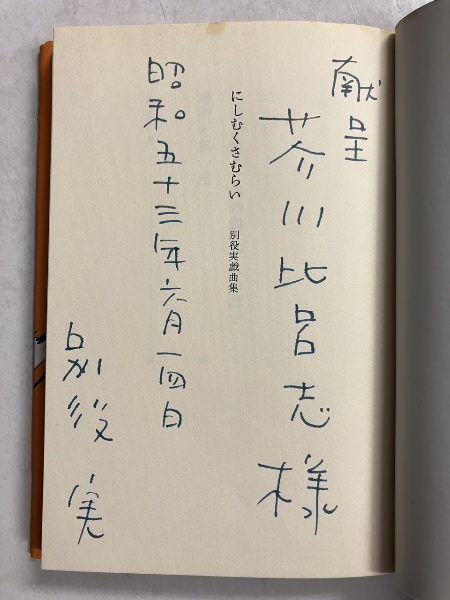 献呈
芥川比呂志様
にしむくさむらい 別役実戯曲集
昭和五十三年六月一四日
別役 実